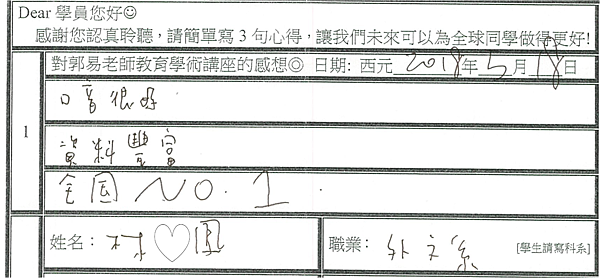 Dear 學員您好☺
感謝您認真聆聽，請簡單寫 3 句心得，讓我們未來可以為全球同學做得更好!
對郭易老師教育學術講座的感想◎ 日期: 西元 2018 年 5 月 18 日
1
口音很好
資料豐富
全国 NO. 1
姓名： 林♡鳳
職業： 外文系 [學生請寫科系]